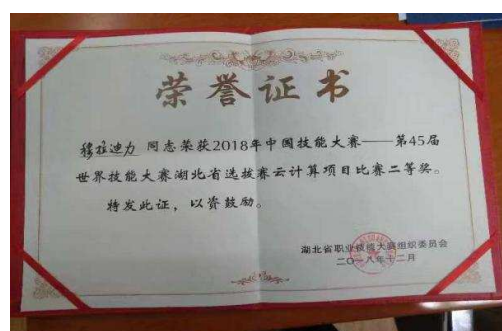 荣誉证书
穆拉迪力 同志荣获2018年中国技能大赛——第45届
世界技能大赛湖北省选拔赛云计算项目比赛二等奖。
特发此证，以资鼓励。
湖北省职业技能大赛组织委员会
二〇一八年十二月